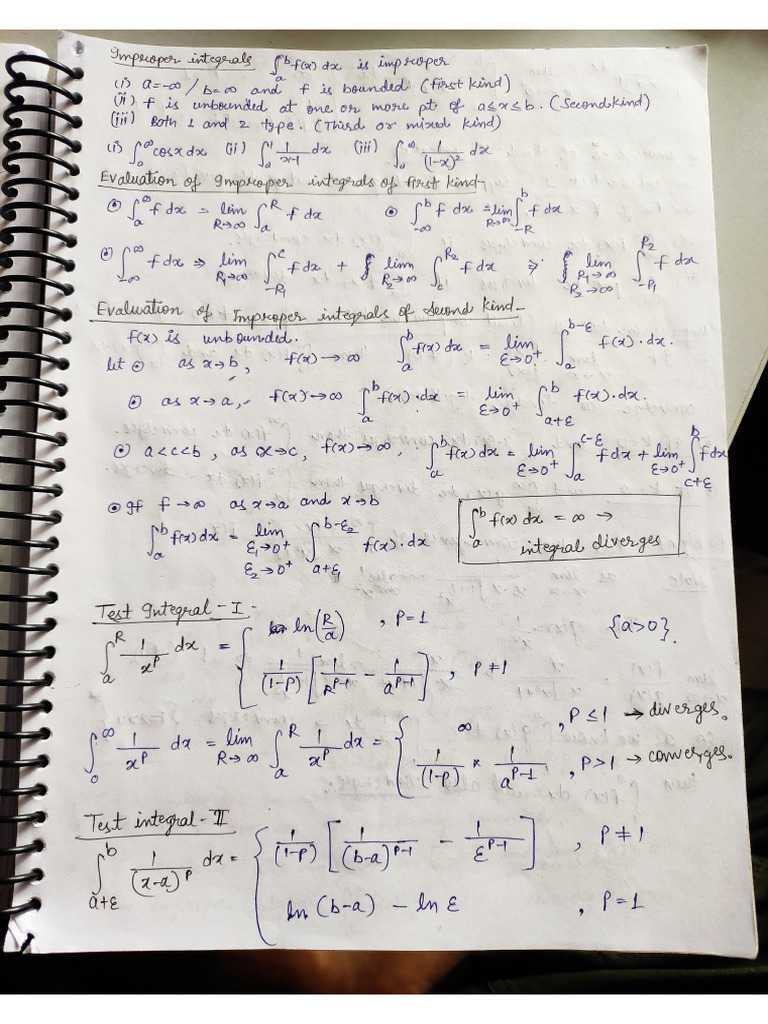 Improper integrals ∫_a^b f(x) dx is improper
(i) a=-∞ / b=∞ and f is bounded (First kind)
(ii) f is unbounded at one or more pt of a≤x≤b. (Second kind)
(iii) Both 1 and 2 type. (Third or mixed kind)
(i) ∫_0^∞ cosx dx (ii) ∫_0^1 1/(x-1) dx (iii) ∫_0^∞ 1/(1-x)² dx
Evaluation of Improper integrals of first kind-
⊙ ∫_a^∞ f dx = lim_{R→∞} ∫_a^R f dx ⊙ ∫_{-∞}^b f dx = lim_{R→∞} ∫_{-R}^b f dx
⊙ ∫_{-∞}^∞ f dx ⇒ lim_{R₁→∞} ∫_{-R₁}^c f dx + lim_{R₂→∞} ∫_c^{R₂} f dx ⇒ lim_{R₁→∞ R₂→∞} ∫_{-R₁}^{R₂} f dx
Evaluation of Improper integrals of second kind-
f(x) is unbounded.
let ⊙ as x→b, f(x)→∞ ∫_a^b f(x) dx = lim_{ε→0⁺} ∫_a^{b-ε} f(x)·dx.
⊙ as x→a, f(x)→∞ ∫_a^b f(x)·dx = lim_{ε→0⁺} ∫_{a+ε}^b f(x)·dx.
⊙ a<c<b, as x→c, f(x)→∞, ∫_a^b f(x) dx = lim_{ε→0⁺} ∫_a^{c-ε} f dx + lim_{ε→0⁺} ∫_{c+ε}^b f dx
⊙ If f→∞ as x→a and x→b
∫_a^b f(x) dx = lim_{ε₁→0⁺ ε₂→0⁺} ∫_{a+ε₁}^{b-ε₂} f(x)·dx
∫_a^b f(x) dx = ∞ →
integral diverges
Test Integral-I-
∫_a^R 1/x^p dx = { ln(R/a) , P=1 {a>0}.
1/(1-p) [1/R^{p-1} - 1/a^{p-1}] , P≠1
∫_0^∞ 1/x^p dx = lim_{R→∞} ∫_a^R 1/x^p dx = { ∞ , P≤1 → diverges.
1/(1-p) * 1/a^{p-1} , P>1 → converges.
Test integral-II
∫_{a+ε}^b 1/(x-a)^p dx = { 1/(1-p) [1/(b-a)^{p-1} - 1/ε^{p-1}] , P≠1
ln(b-a) - ln ε , P=1